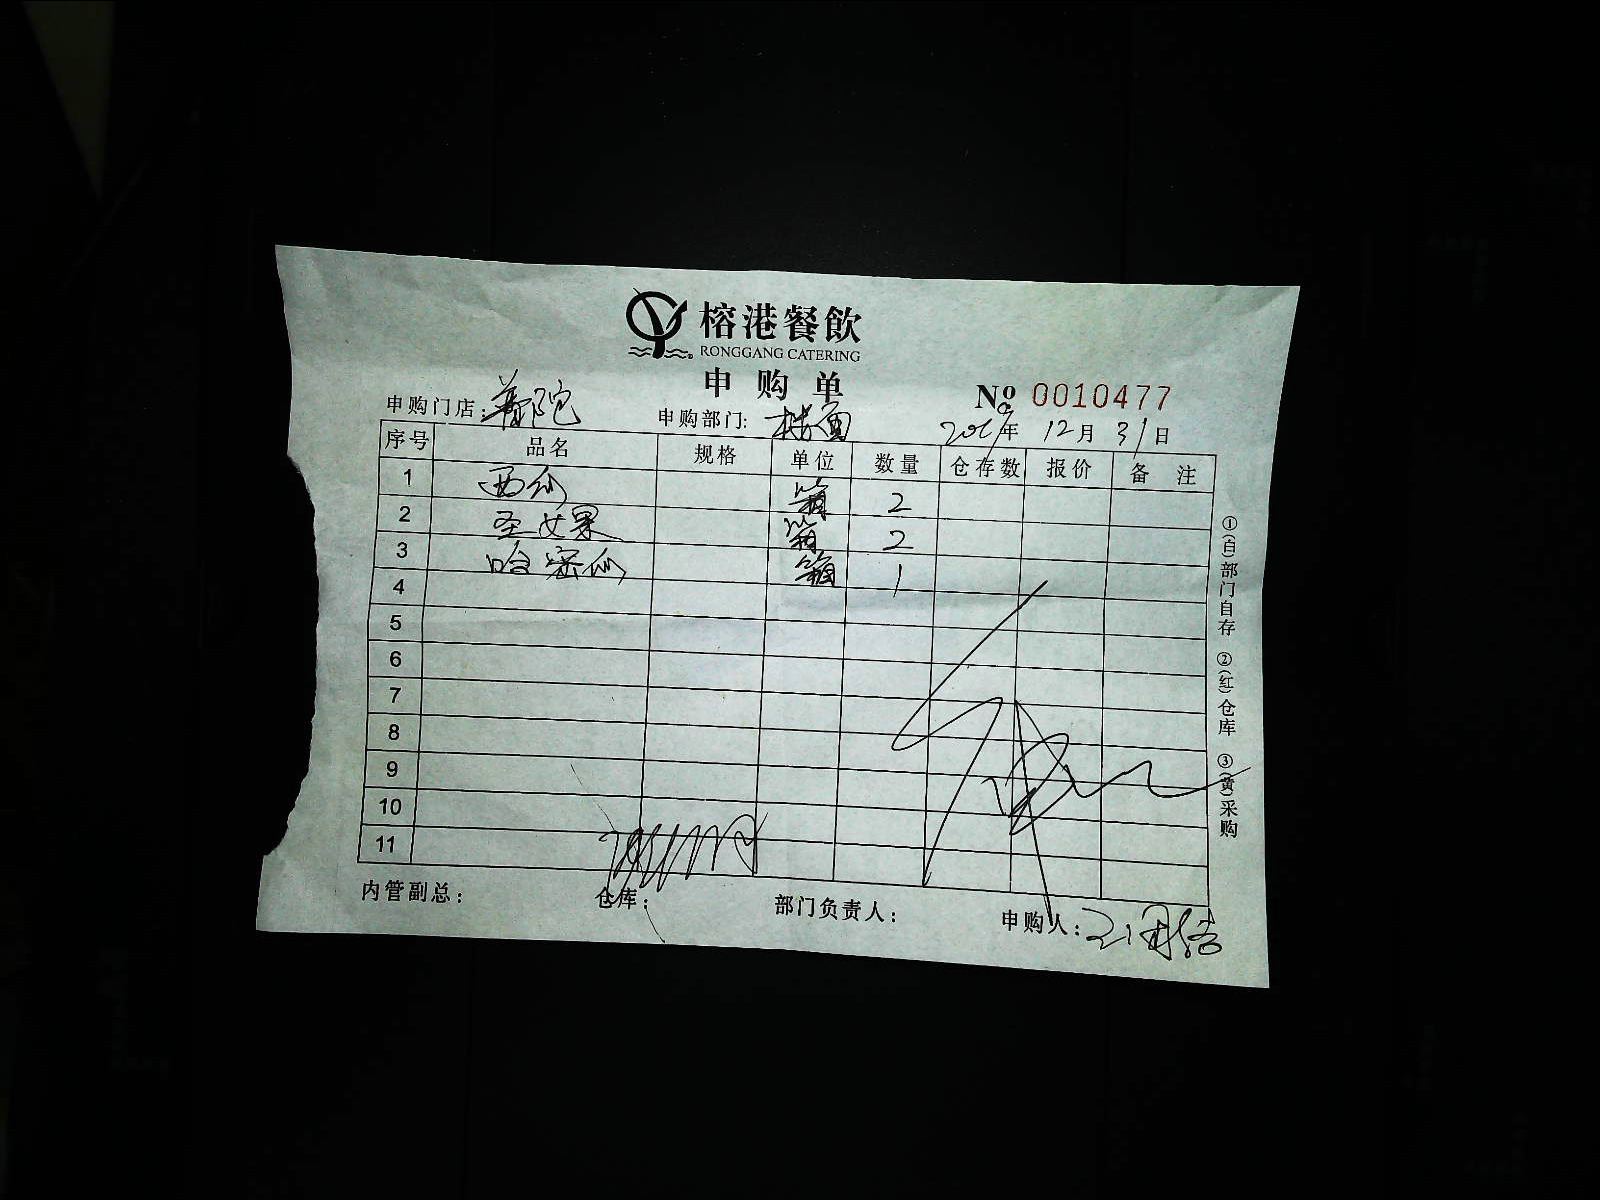 榕港餐飲
RONGGANG CATERING
申购单
№ 0010477
申购门店：普陀 申购部门：楼面 2019年 12月 31日
序号 品名 规格 单位 数量 仓存数 报价 备注
1 西瓜 箱 2
2 圣女果 箱 2
3 哈密瓜 箱 1
4
5
6
7
8
9
10
11
内管副总： 仓库： 部门负责人： 申购人：
①(白)部门自存 ②(红)仓库 ③(黄)采购